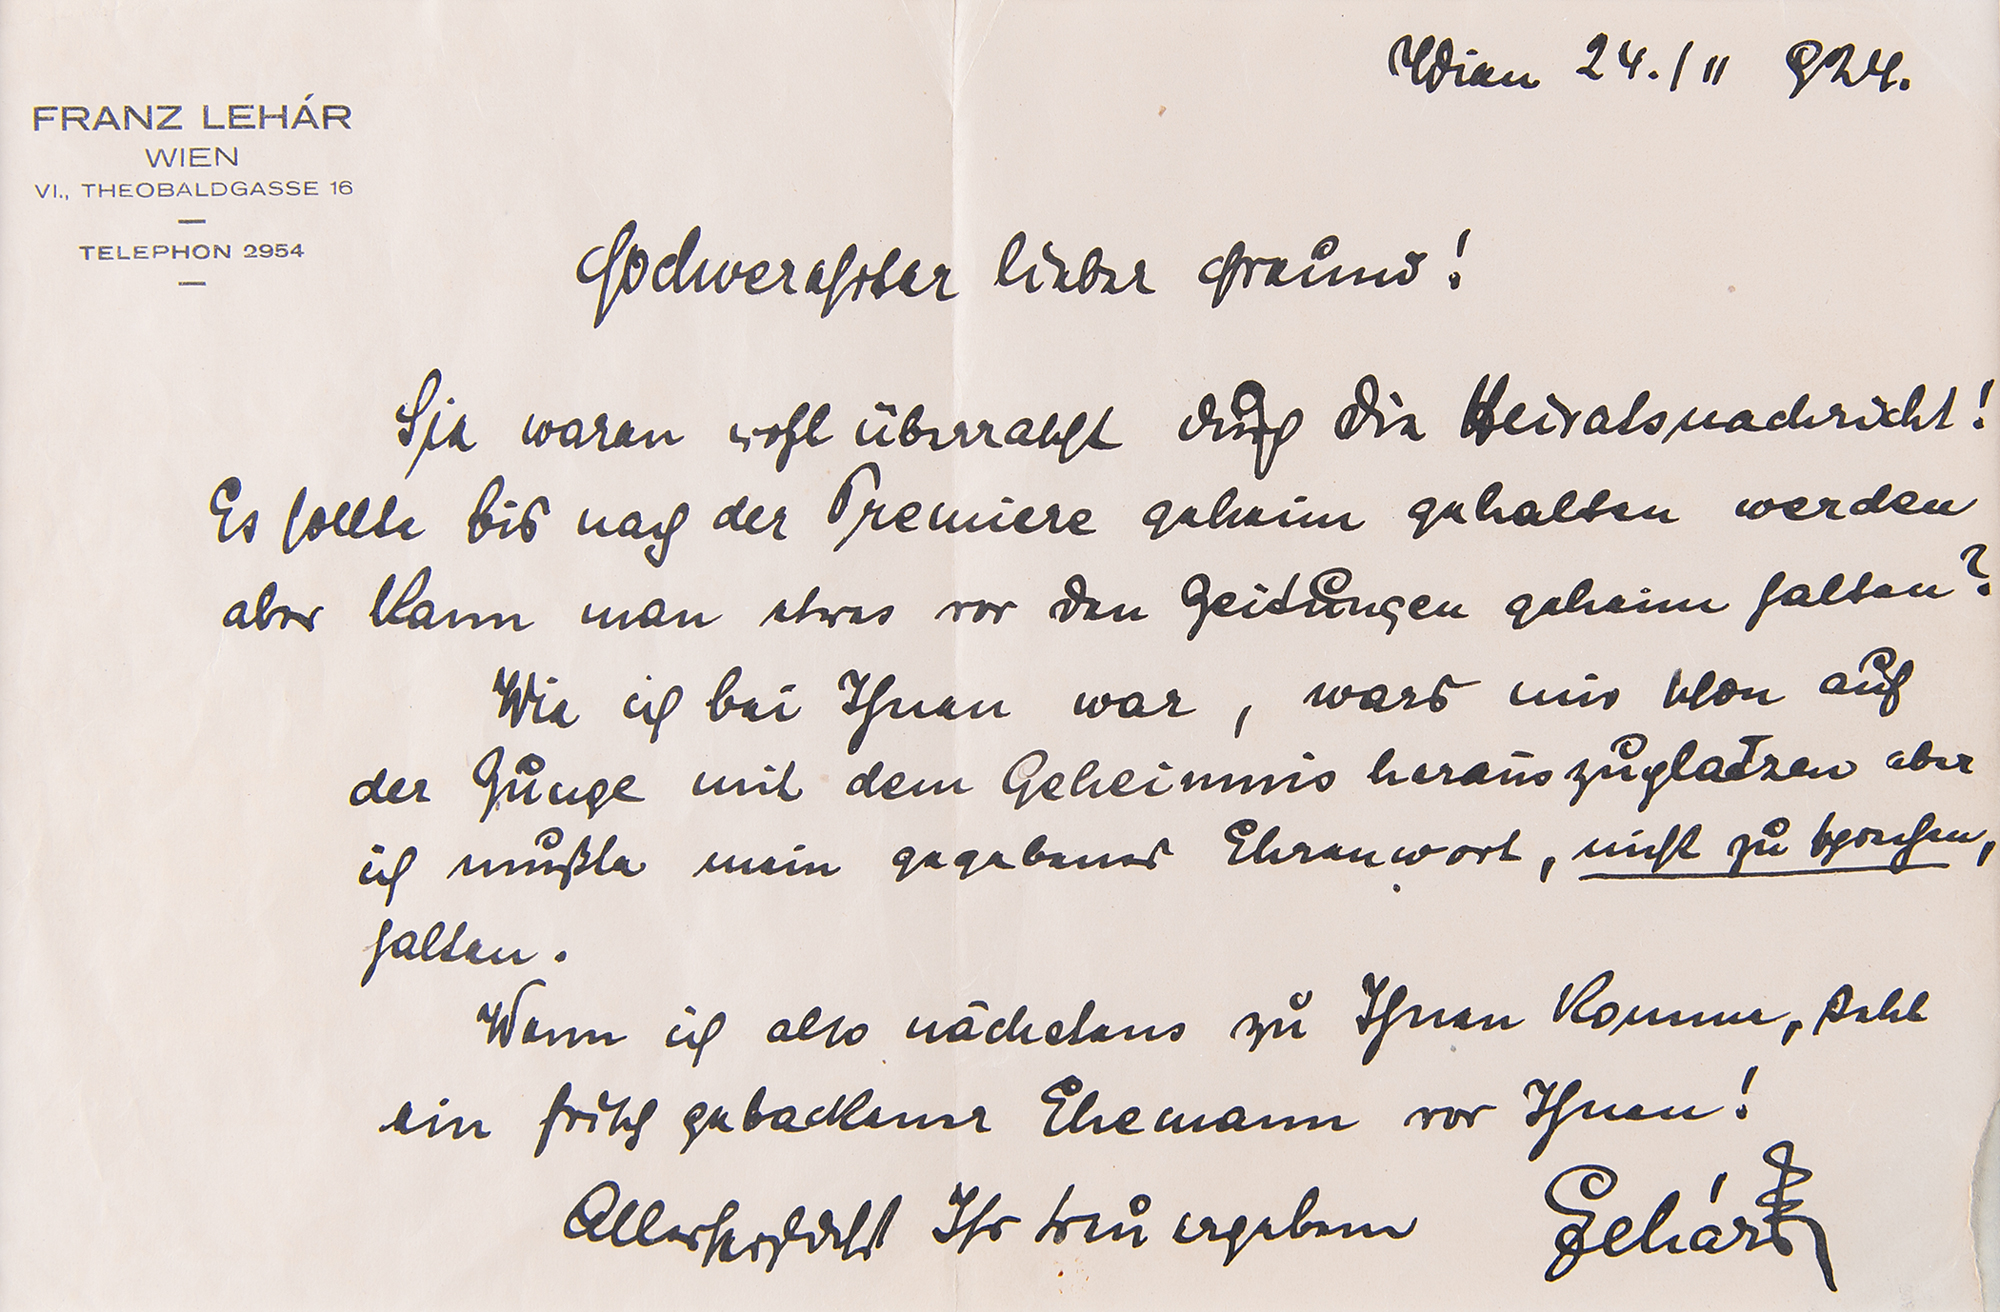 Wien 24./II 924.
FRANZ LEHÁR
WIEN
VI., THEOBALDGASSE 16
TELEPHON 2954
Hochverehrter lieber Freund!
Sie waren wohl überrascht durch die Heiratsnachricht!
Es sollte bis nach der Premiere geheim gehalten werden
aber kann man etwas vor den Zeitungen geheim halten?
Wie ich bei Ihnen war, wars mir schon auf
der Zunge mit dem Geheimnis herauszuplatzen aber
ich mußte mein gegebenes Ehrenwort, nicht zu sprechen,
halten.
Wenn ich also nächstens zu Ihnen komme, steht
ein frisch gebackener Ehemann vor Ihnen!
Allerherzlichst Ihr treu ergebener Lehár